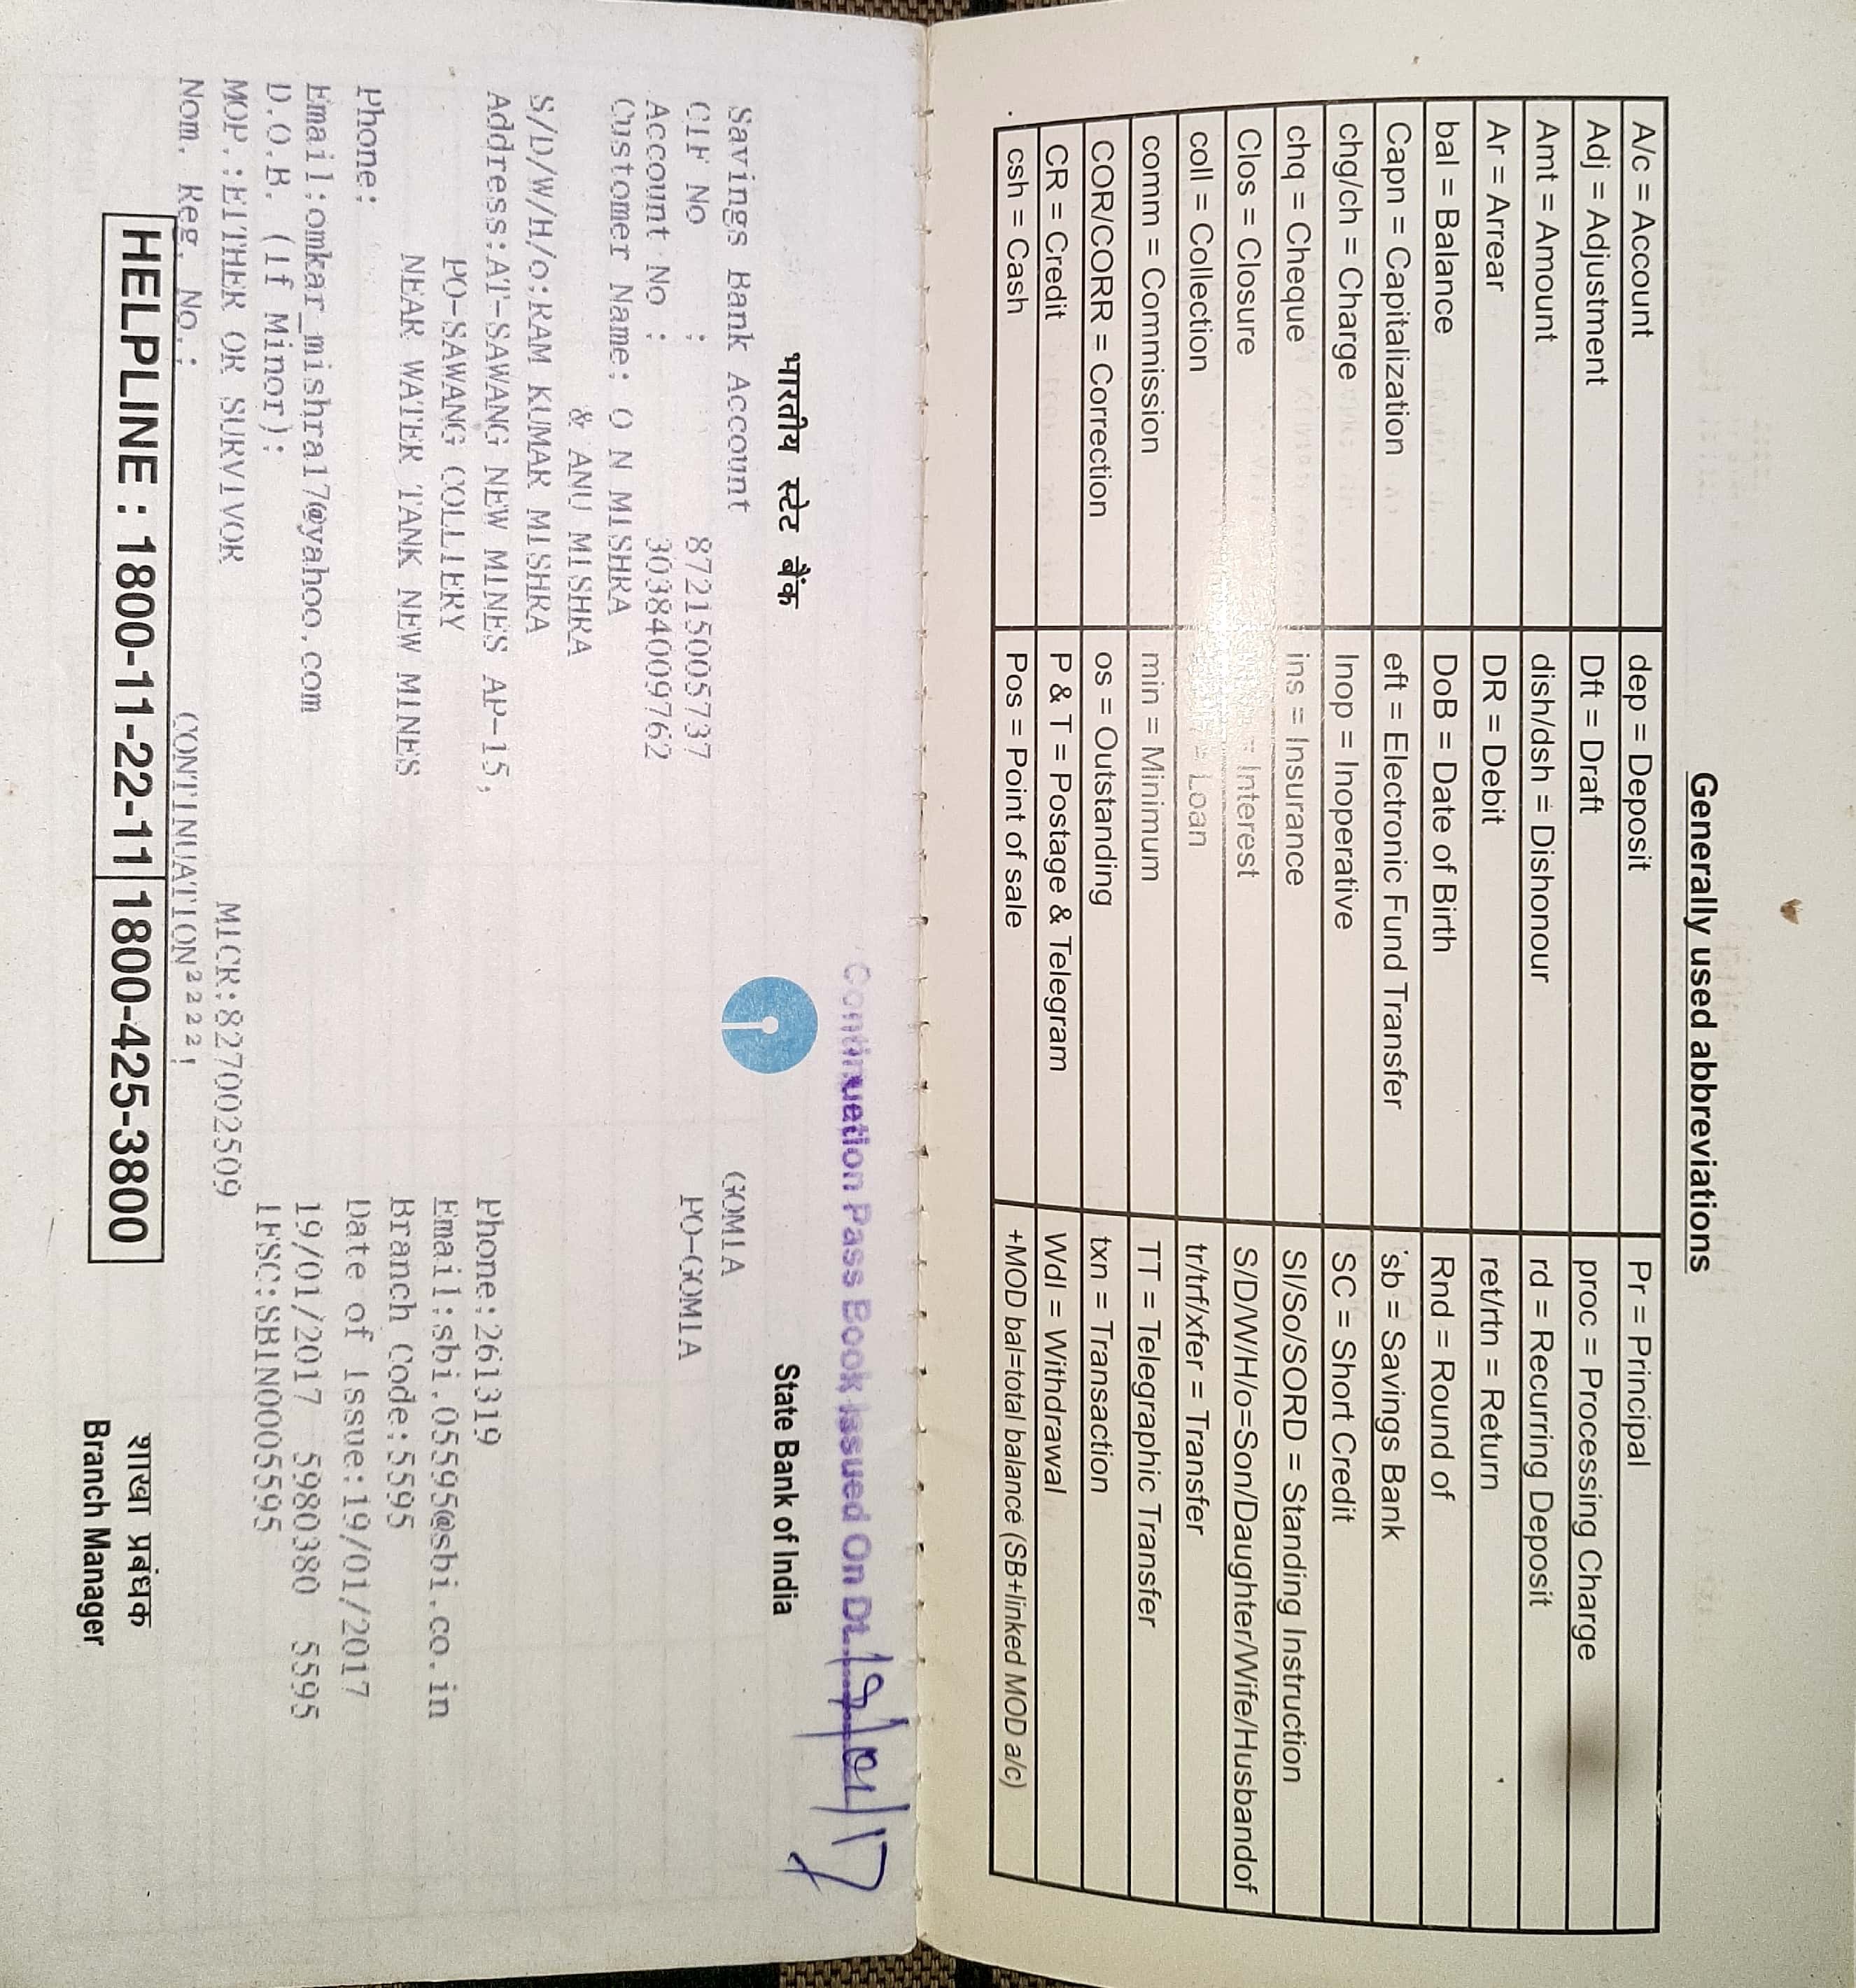 Generally used abbreviations
A/c = Account dep = Deposit Pr = Principal
Adj = Adjustment Dft = Draft proc = Processing Charge
Amt = Amount dish/dsh = Dishonour rd = Recurring Deposit
Ar = Arrear DR = Debit ret/rtn = Return
bal = Balance DoB = Date of Birth Rnd = Round of
Capn = Capitalization eft = Electronic Fund Transfer sb = Savings Bank
chg/ch = Charge Inop = Inoperative SC = Short Credit
chq = Cheque ins = Insurance SI/So/SORD = Standing Instruction
Clos = Closure = Interest S/D/W/H/o=Son/Daughter/Wife/Husbandof
coll = Collection = Loan tr/trf/xfer = Transfer
comm = Commission min = Minimum TT = Telegraphic Transfer
COR/CORR = Correction os = Outstanding txn = Transaction
CR = Credit P & T = Postage & Telegram Wdl = Withdrawal
csh = Cash Pos = Point of sale +MOD bal=total balance (SB+linked MOD a/c)
Continuation Pass Book Issued On Dt. 19/01/17
भारतीय स्टेट बैंक State Bank of India
Savings Bank Account GOMIA
CIF No : 87215005737 PO-GOMIA
Account No : 30384009762
Customer Name: O N MISHRA
& ANU MISHRA
S/D/W/H/o:RAM KUMAR MISHRA
Address:AT-SAWANG NEW MINES AP-15, Phone:261319
PO-SAWANG COLLIERY Email:sbi.05595@sbi.co.in
NEAR WATER TANK NEW MINES Branch Code:5595
Phone: Date of Issue:19/01/2017
Email:omkar_mishra17@yahoo.com 19/01/2017 5980380 5595
D.O.B. (If Minor): IFSC:SBIN0005595
MOP.:EITHER OR SURVIVOR MICR:827002509
Nom. Reg. No.: CONTINUATION2222!
HELPLINE : 1800-11-22-11 1800-425-3800
शाखा प्रबंधक
Branch Manager